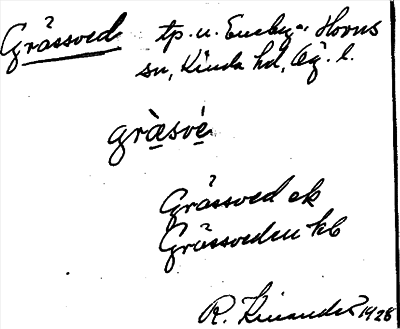 Grässved tp. u. Eneby, Horns
sn, Kinda hd, Ög. l.
grä̀svè
Grässved ek
Grässveden kb
R. Kinander 1928